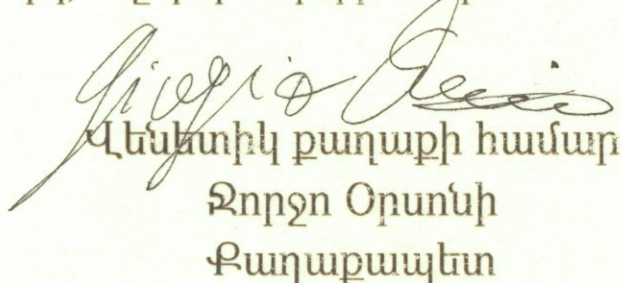 Giorgio
Վենետիկ քաղաքի համար
Ջորջո Օրսոնի
Քաղաքապետ